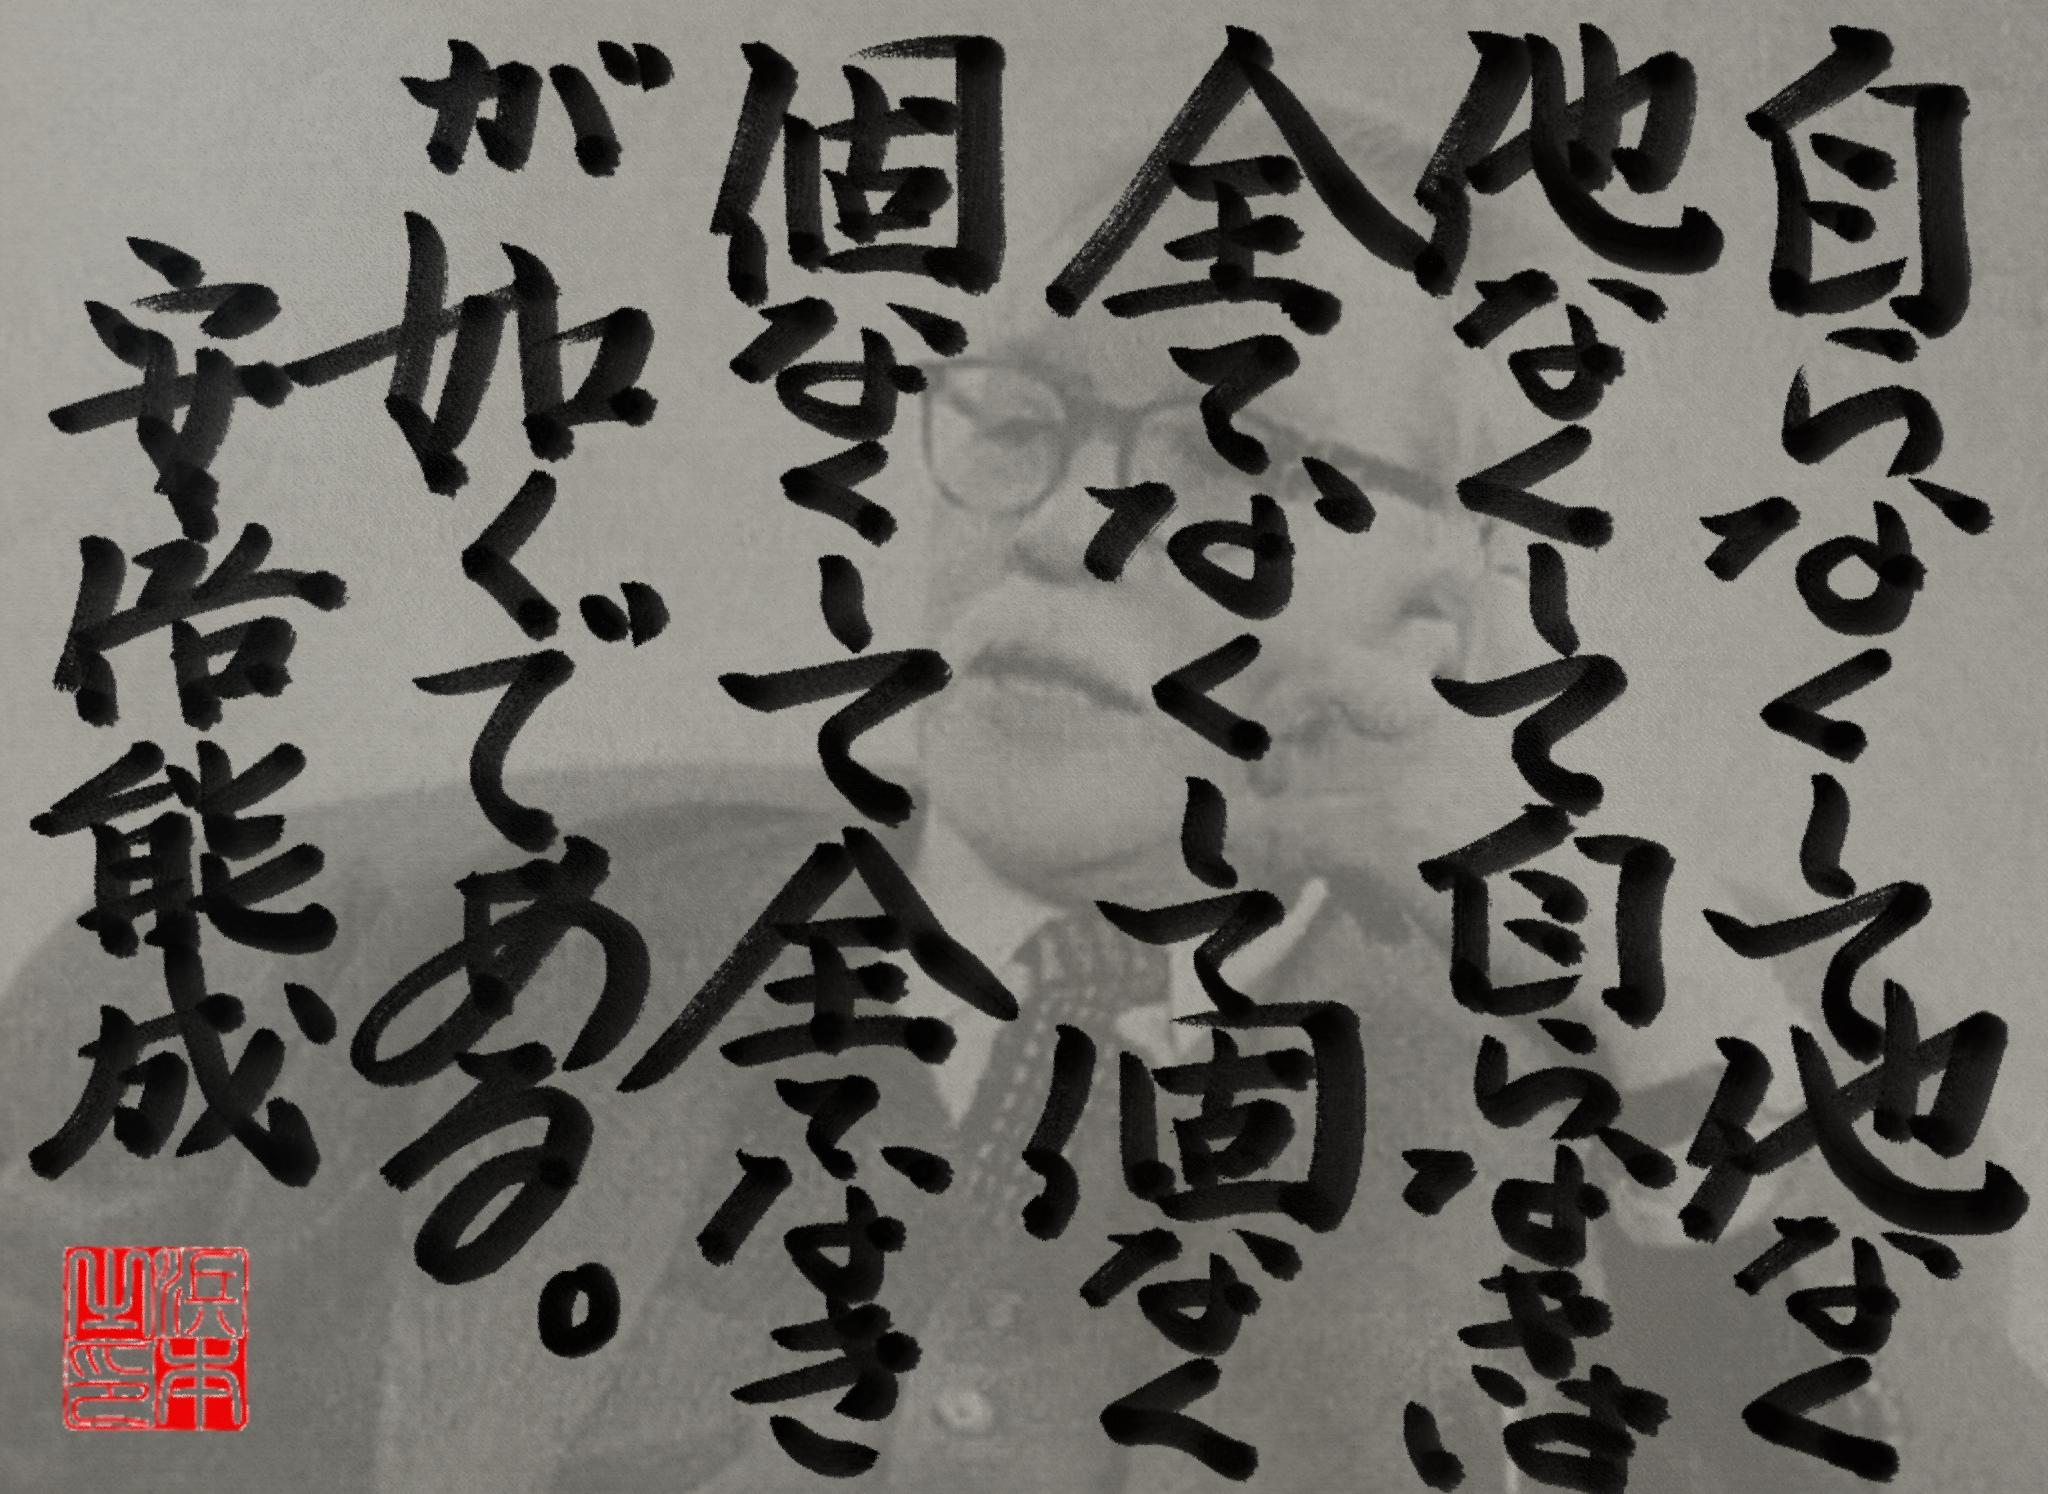 自らなくして他なく
他なくして自らなきは
全てなくして個なく
個なくして全てなき
が如くである。
安倍能成
浜本
之印